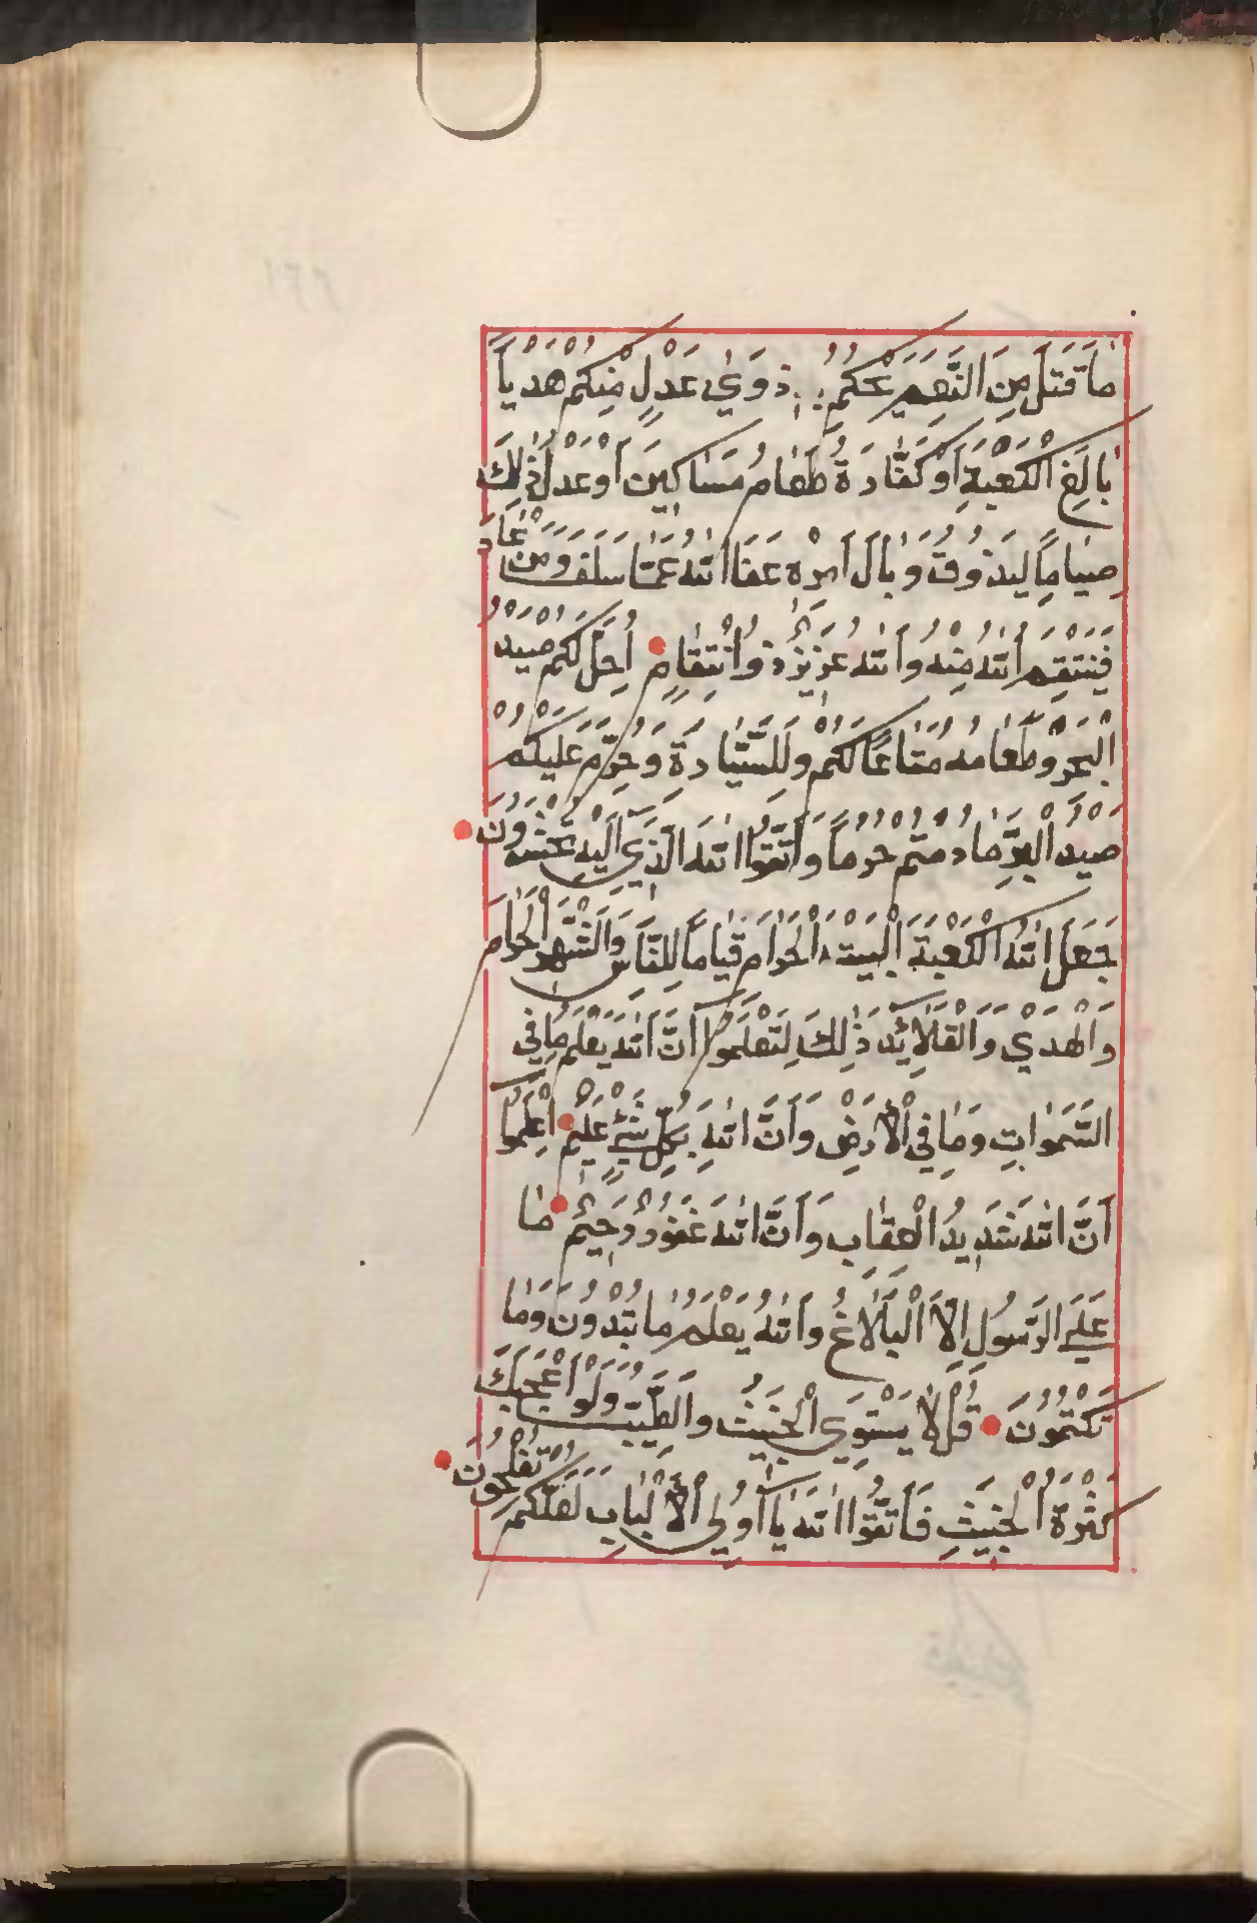 مَا قَتَلَ مِنَ النَّعَمِ يَحْكُمُ بِهِ ذَوَيْ عَدْلٍ مِنْكُمْ هَدْيًا
بَالِغَ الْكَعْبَةِ أَوْ كَفَّارَةُ طَعَامُ مَسَاكِينَ أَوْ عَدْلُ ذٰلِكَ
صِيَامًا لِيَذُوقَ وَبَالَ أَمْرِهِ عَفَا اللهُ عَمَّا سَلَفَ وَمَنْ عَادَ
فَيَنْتَقِمُ اللهُ مِنْهُ وَاللهُ عَزِيزٌ ذُو انْتِقَامٍ أُحِلَّ لَكُمْ صَيْدُ
الْبَحْرِ وَطَعَامُهُ مَتَاعًا لَكُمْ وَلِلسَّيَّارَةِ وَحُرِّمَ عَلَيْكُمْ
صَيْدُ الْبَرِّ مَا دُمْتُمْ حُرُمًا وَاتَّقُوا اللهَ الَّذِي إِلَيْهِ تُحْشَرُونَ
جَعَلَ اللهُ الْكَعْبَةَ الْبَيْتَ الْحَرَامَ قِيَامًا لِلنَّاسِ وَالشَّهْرَ الْحَرَامَ
وَالْهَدْيَ وَالْقَلَائِدَ ذٰلِكَ لِتَعْلَمُوا أَنَّ اللهَ يَعْلَمُ مَا فِي
السَّمٰوَاتِ وَمَا فِي الْأَرْضِ وَأَنَّ اللهَ بِكُلِّ شَيْءٍ عَلِيمٌ اعْلَمُوا
أَنَّ اللهَ شَدِيدُ الْعِقَابِ وَأَنَّ اللهَ غَفُورٌ رَحِيمٌ مَا
عَلَى الرَّسُولِ إِلَّا الْبَلَاغُ وَاللهُ يَعْلَمُ مَا تُبْدُونَ وَمَا
تَكْتُمُونَ قُلْ لَا يَسْتَوِي الْخَبِيثُ وَالطَّيِّبُ وَلَوْ أَعْجَبَكَ
كَثْرَةُ الْخَبِيثِ فَاتَّقُوا اللهَ يَا أُولِي الْأَلْبَابِ لَعَلَّكُمْ تُفْلِحُونَ